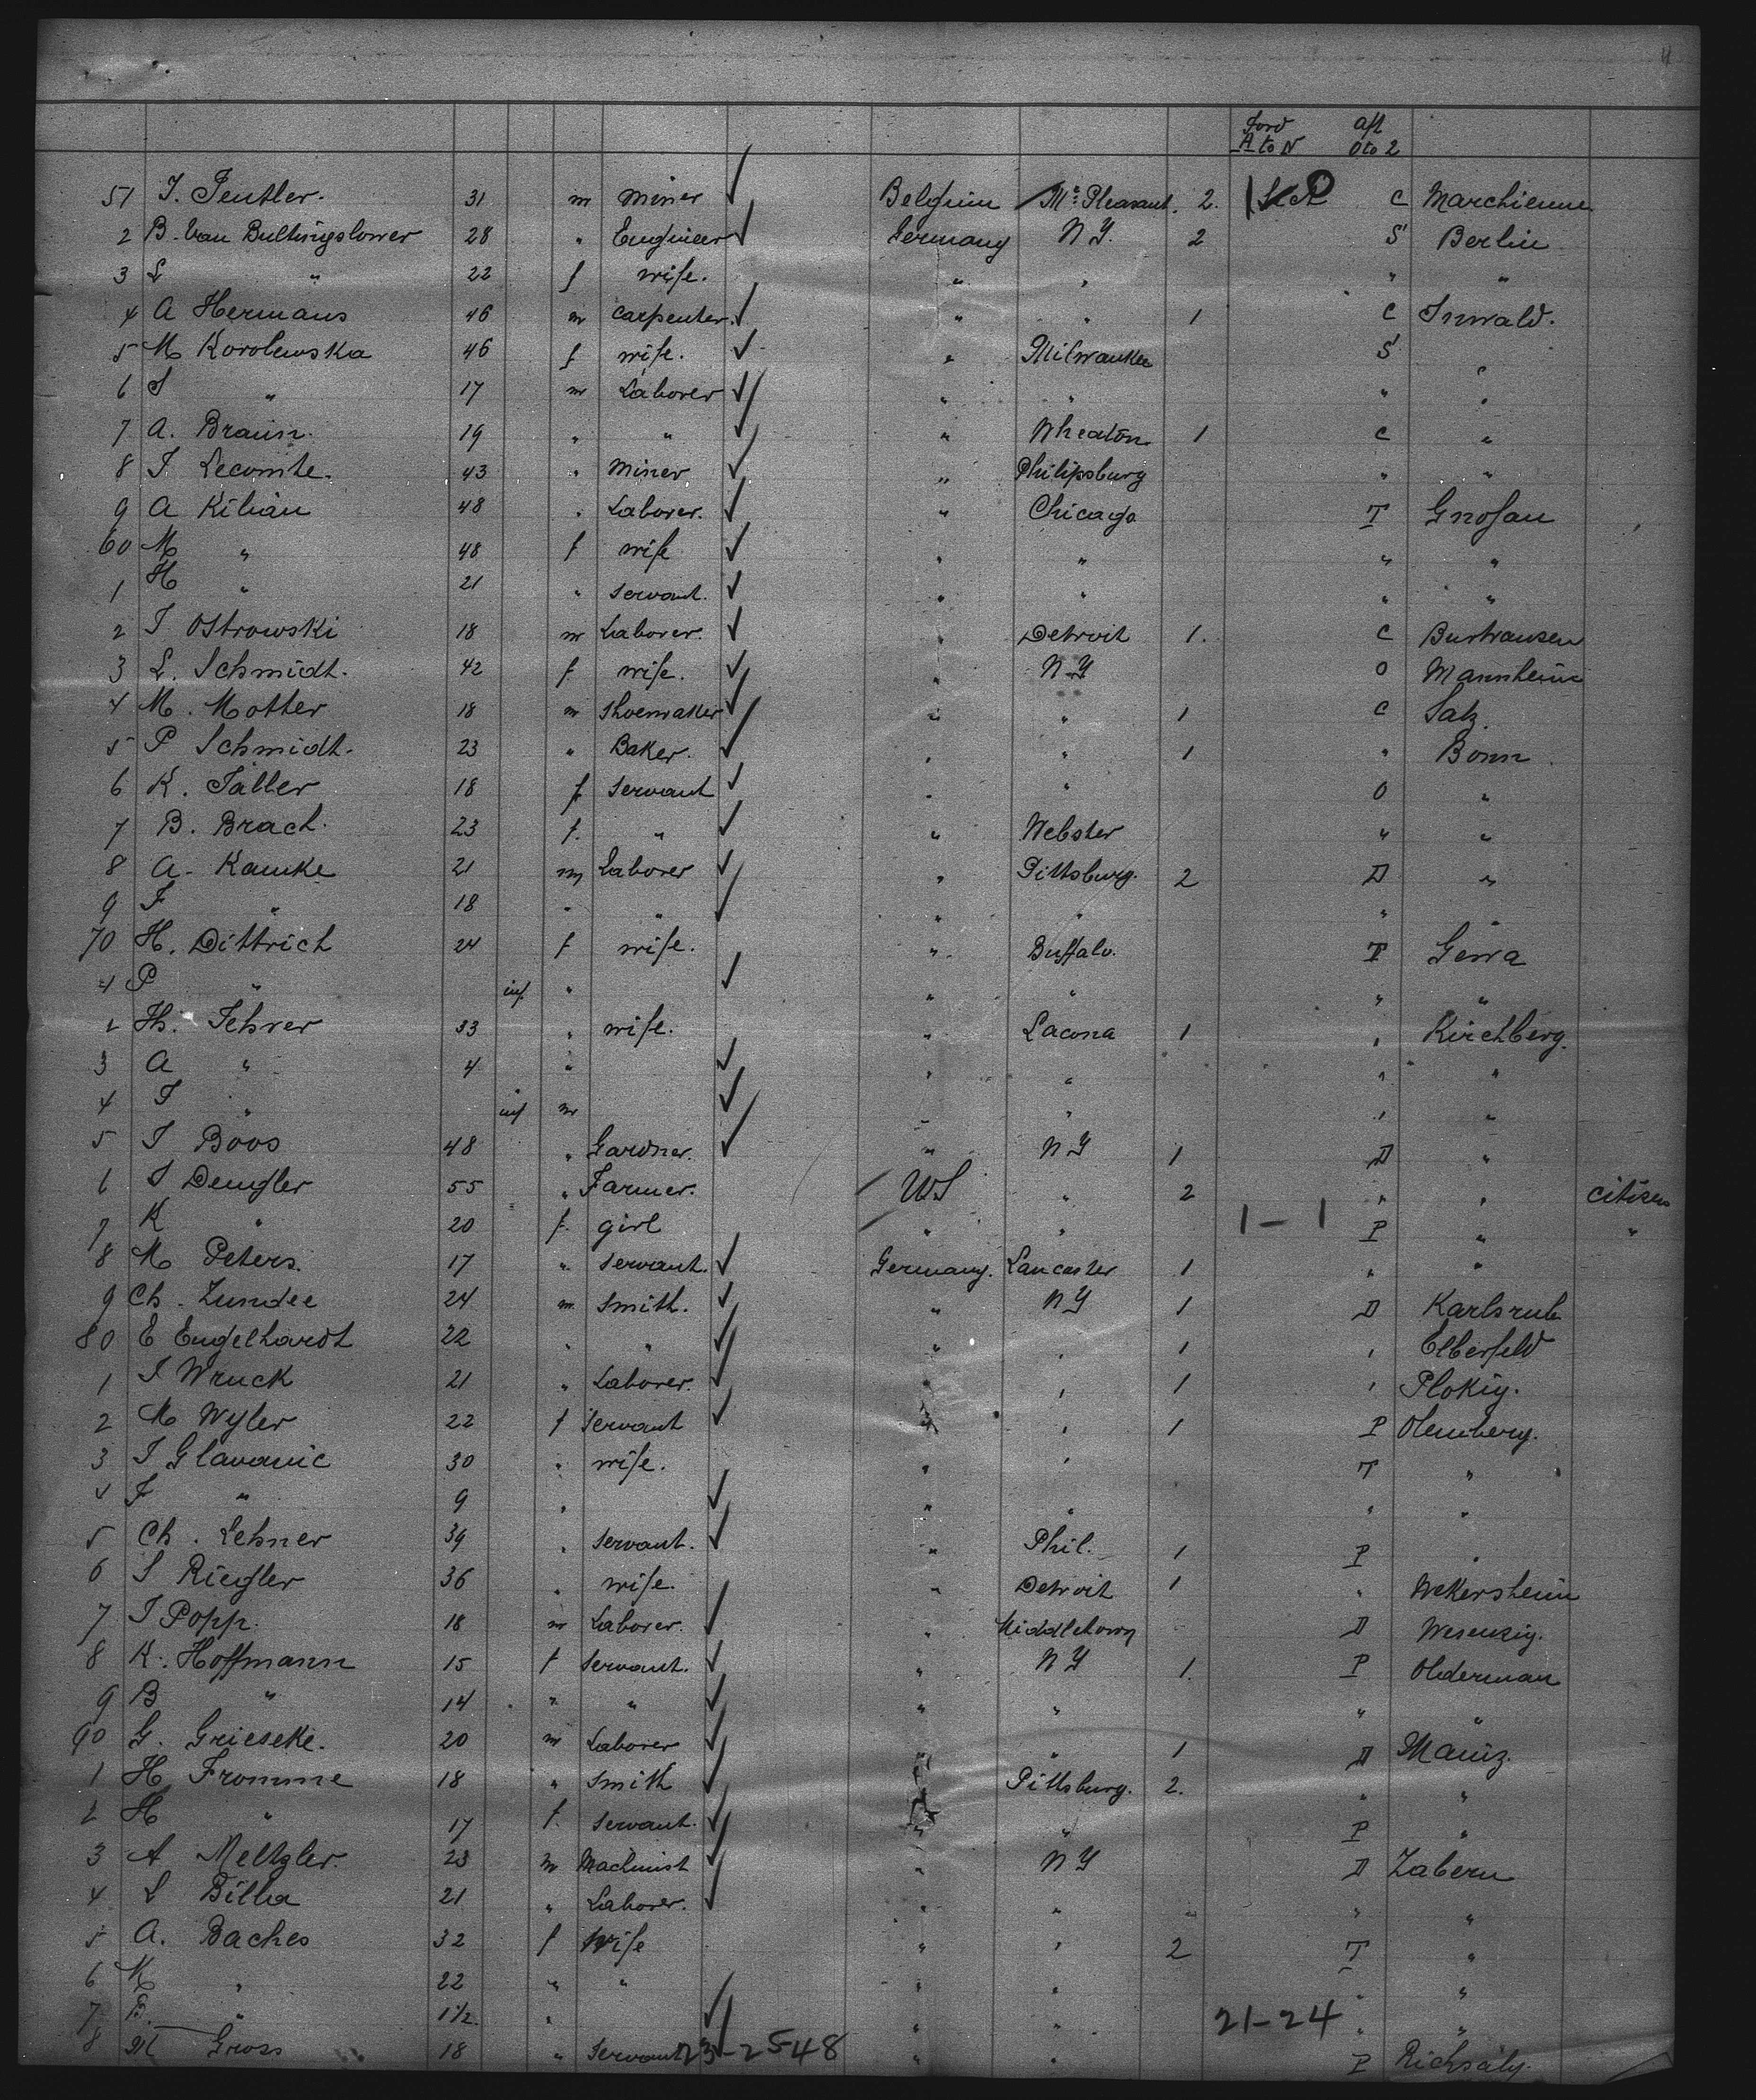 Ford aft
A to N O to Z
51 J. Jentler. 31 m Miner Belgium Mt Pleasant. 2. C Marchienne
2 B. Van Bultingslower 28 " Engineer Germany N Y. 2 S Berlin
3 L " 22 f wife. " " " "
4 A Hermans 46 m carpenter. " " 1 C Inwald.
5 M Korolewska 46 f wife. " Milwaukee S "
6 S " 17 m Laborer " " " "
7 A. Braun. 19 " " " Wheaton 1 C "
8 J. Lecomte. 43 " Miner " Philipsburg " "
9 A Kilian 48 " Laborer. " Chicago T Gnosau
60 M " 48 f wife " " " "
1 H " 21 " servant. " " " "
2 J Ostrowski 18 m Laborer. " Detroit 1. C
3 L. Schmidt. 42 f wife. " N Y O Mannheim
4 M. Motter 18 m Shoemaker " " 1 C Salz.
5 P Schmidt. 23 " Baker. " " 1 " Bonn
6 K. 18 f servant " " O "
7 B. Brach. 23 f. " " Webster " "
8 A. Kamke 21 m Laborer " Pittsburg. 2 D "
9 F " 18 " " " " " "
70 H. Dittrich 24 f wife. " Buffalo. T Gera
1 P " inf " " " " "
2 Th. Fehrer 33 " wife. " Lacona 1 " Kirchberg.
3 A " 4 " " " " "
4 J " inf m " " " "
5 J Boos 48 " Gardner. " N Y 1 D "
6 J Dengler 55 " Farmer. US " 2 " " citizen
7 K " 20 f. girl " " 1 - 1 P " "
8 M Peters. 17 " servant. Germany. Lancaster 1 " "
9 Ch. Zundee 24 m smith. " N Y 1 D Karlsruh
80 E Engelhardt 22 " " " " 1 " Elberfeld
1 J Wruck 21 " Laborer. " " 1 " Plokig.
2 M Wyler 22 f servant " " 1 P Olemberg.
3 J Glavanic 30 " wife. " " T "
4 F " 9 " " " " "
5 Ch. Lehner 39 " servant. " Phil. 1 P "
6 S Riegler 36 " wife. " Detroit 1 " Wekersheim
7 J Popp. 18 m Laborer. " Middletown D
8 K. Hoffmann 15 f servant. " N Y 1. P Olderman
9 B " 14 " " " " " "
90 G. Grieseke. 20 m Laborer " " 1 D Mainz.
1 H Fromme 18 " smith " Pittsburg. 2. " "
2 H " 17 f. servant. " " P "
3 A Meltzler. 23 m Machinist " N Y D Zabern
4 L Billa 21 " Laborer. " " " " "
5 A. Baches 32 f wife " " 2 T "
6 M " 22 " " " " " "
7 B. " 1 1/2. " " " 21-24 " "
8 M Gross 18 " servant 23-2548 " " P